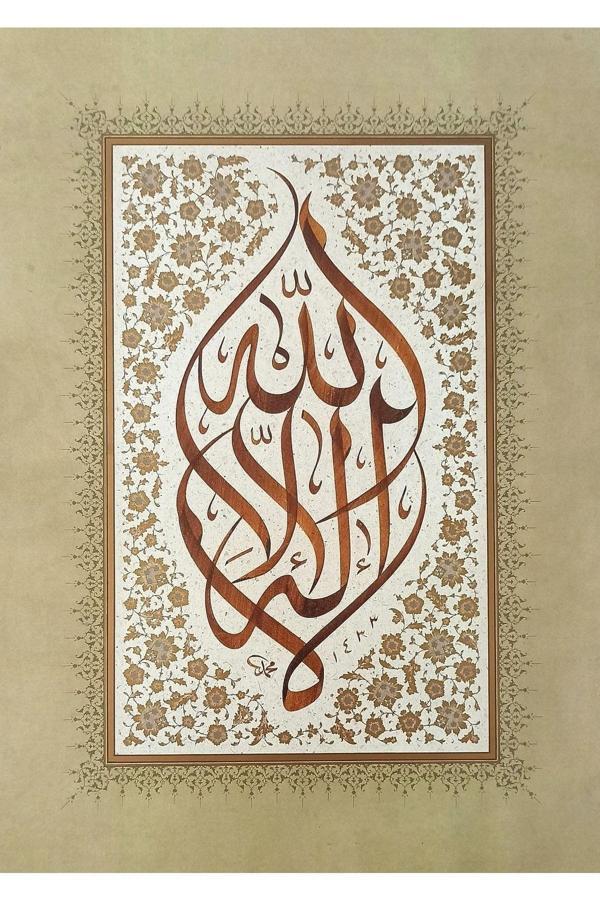 لا إله إلا الله
محمد
١٤٣٣